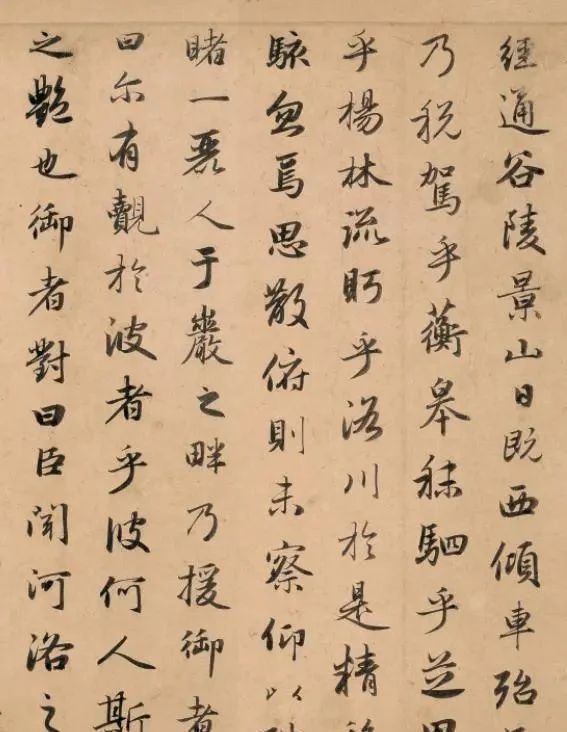 經通谷陵景山日既西傾車殆
乃税駕乎蘅皋秣駟乎芝田
乎楊林流眄乎洛川於是精移
駭忽焉思散俯則未察仰以
睹一麗人于巖之畔乃援御者
曰尔有覿於彼者乎彼何人斯
之艷也御者對曰臣聞河洛之